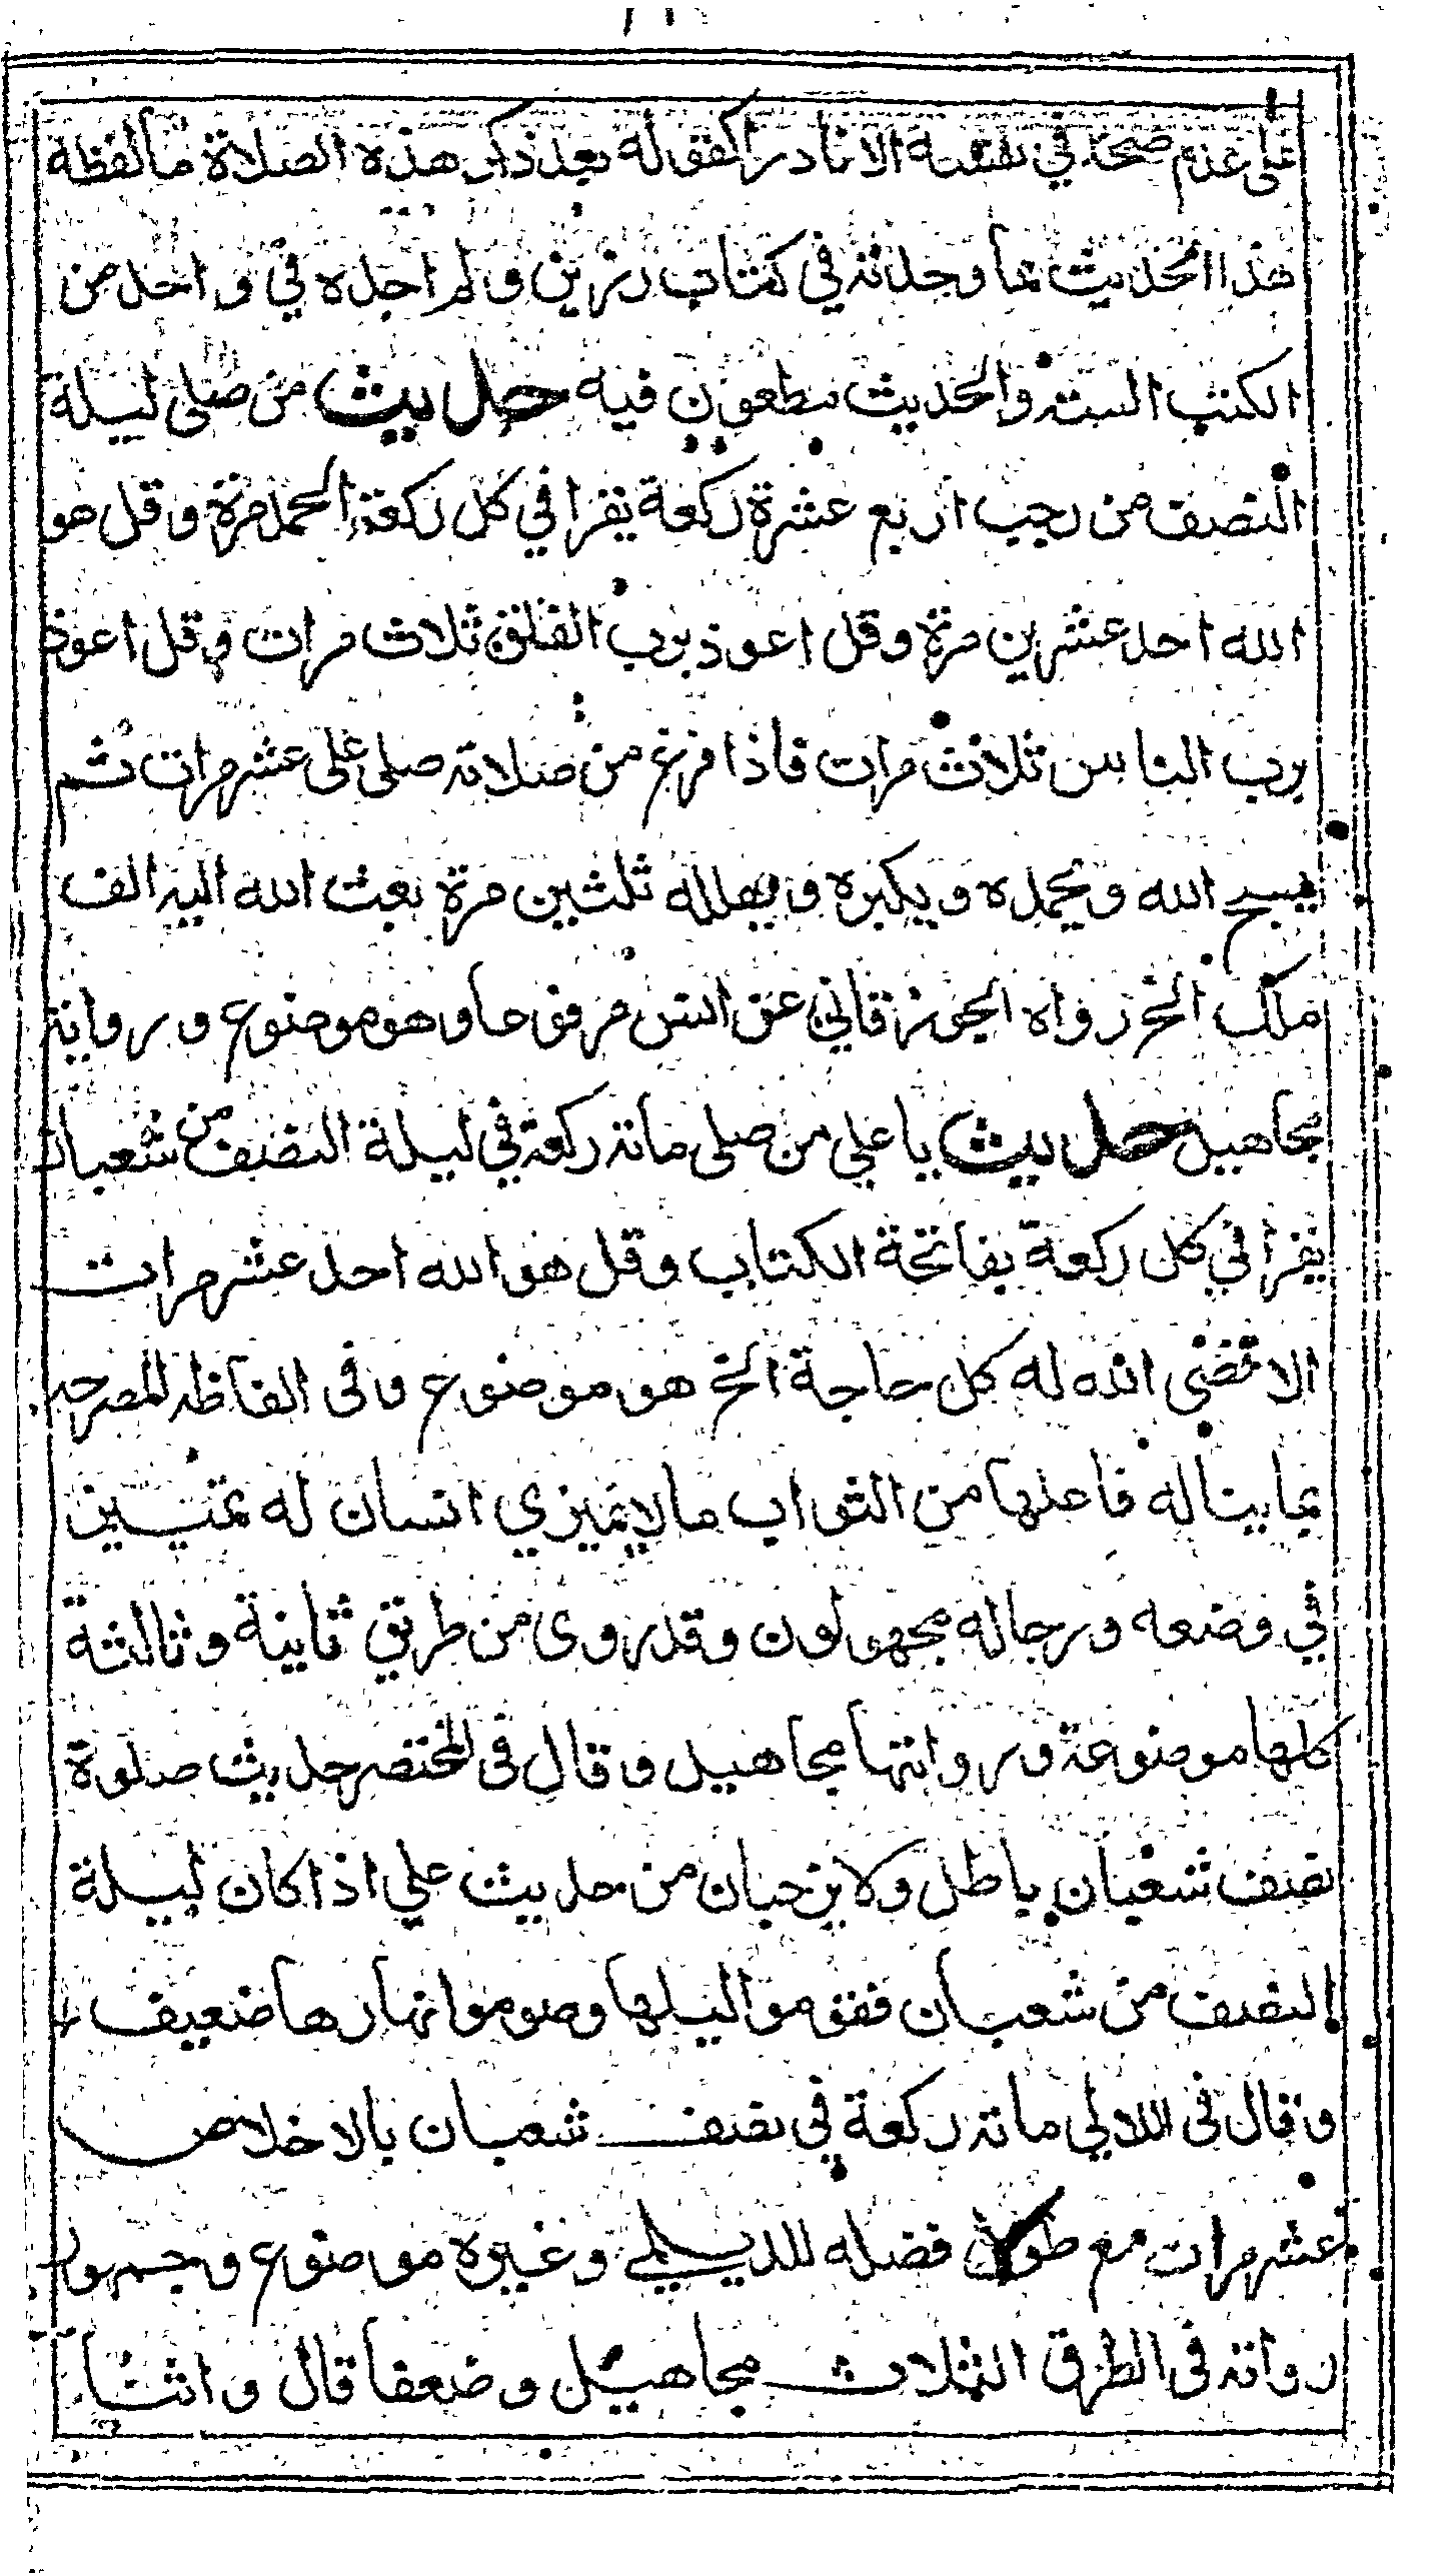 على عدم صحة في نفسه الا نادر كقوله بعد ذكر هذه الصلاة ما لفظه
هذا الحديث مما وجدته في كتاب رزين ولم اجده في واحد من
الكتب الستة والحديث مطعون فيه حديث من صلى ليلة
النصف من رجب اربع عشرة ركعة يقرا في كل ركعة الحمد مرة وقل هو
الله احد عشرين مرة وقل اعوذ برب الفلق ثلاث مرات وقل اعوذ
برب الناس ثلاث مرات فاذا فرغ من صلاته صلى علي عشر مرات ثم
يسبح الله ويحمده ويكبره ويهلله ثلثين مرة بعث الله اليه الف
ملك الخ رواه الجوزقاني عن انس مرفوعا وهو موضوع ورواته
مجاهيل حديث يا علي من صلى مائة ركعة في ليلة النصف من شعبان
يقرا في كل ركعة بفاتحة الكتاب وقل هو الله احد عشر مرات
الا قضى الله له كل حاجة الخ هو موضوع وفى الفاظه المصرحة
بما يناله فاعلها من الثواب ما لا يميزي انسان له تمييز
في وضعه ورجاله مجهولون وقد روى من طريق ثانية وثالثة
كلها موضوعة ورواتها مجاهيل وقال فى المختصر حديث صلوة
نصف شعبان باطل ولابن حبان من حديث علي اذا كان ليلة
النصف من شعبان فقوموا ليلها وصوموا نهارها ضعيف
وقال فى اللالي مائة ركعة في نصف شعبان بالاخلاص
عشر مرات مع طول فضله للديلمي وغيره موضوع وجمهور
رواته فى الطرق الثلاث مجاهيل وضعفا قال واثنتا